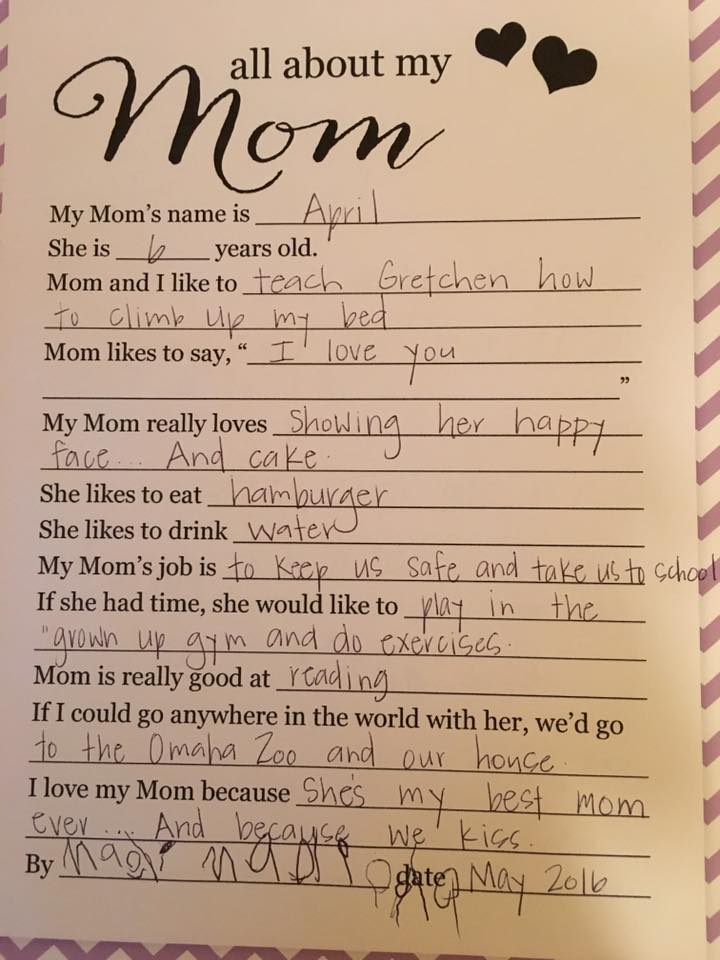 all about my
Mom
My Mom's name is April
She is 6 years old.
Mom and I like to teach Gretchen how
to climb up my bed
Mom likes to say, “ I love you
”
My Mom really loves showing her happy
face... And cake.
She likes to eat hamburger
She likes to drink water
My Mom's job is to keep us safe and take us to school
If she had time, she would like to play in the
"grown up gym and do exercises.
Mom is really good at reading
If I could go anywhere in the world with her, we'd go
to the Omaha Zoo and our house.
I love my Mom because She's my best mom
ever... And because we kiss.
By date May 2016